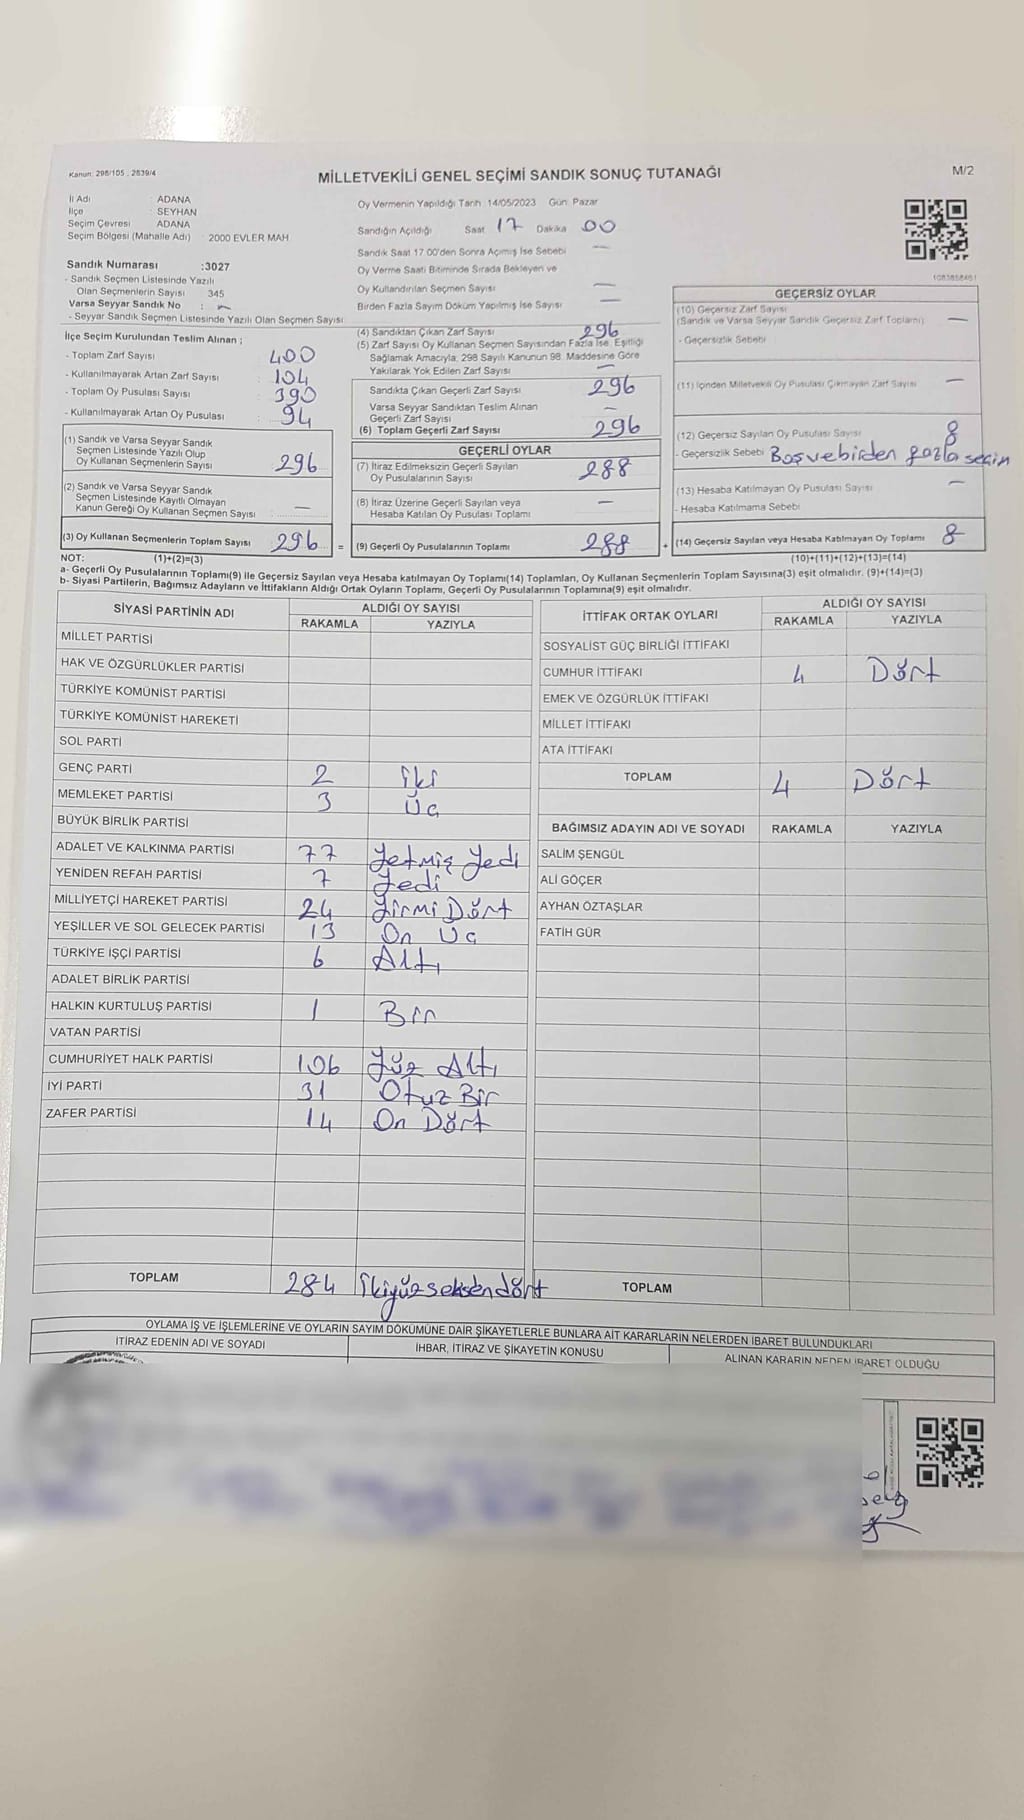 Kanun: 298/105 , 2839/4
MİLLETVEKİLİ GENEL SEÇİMİ SANDIK SONUÇ TUTANAĞI
M/2
İl Adı ADANA
İlçe SEYHAN
Seçim Çevresi ADANA
Seçim Bölgesi (Mahalle Adı) : 2000 EVLER MAH.
Sandık Numarası :3027
- Sandık Seçmen Listesinde Yazılı
Olan Seçmenlerin Sayısı 345
Varsa Seyyar Sandık No : —
- Seyyar Sandık Seçmen Listesinde Yazılı Olan Seçmen Sayısı:
Oy Vermenin Yapıldığı Tarih :14/05/2023 Gün: Pazar
Sandığın Açıldığı Saat 17 Dakika 00
Sandık Saat 17:00'den Sonra Açımış İse Sebebi —
Oy Verme Saati Bitiminde Sırada Bekleyen ve
Oy Kullandırılan Seçmen Sayısı —
Birden Fazla Sayım Döküm Yapılmış İse Sayısı —
İlçe Seçim Kurulundan Teslim Alınan ;
- Toplam Zarf Sayısı : 400
- Kullanılmayarak Artan Zarf Sayısı : 104
- Toplam Oy Pusulası Sayısı : 390
- Kullanılmayarak Artan Oy Pusulası : 94
(1) Sandık ve Varsa Seyyar Sandık
Seçmen Listesinde Yazılı Olup
Oy Kullanan Seçmenlerin Sayısı 296
(2) Sandık ve Varsa Seyyar Sandık
Seçmen Listesinde Kayıtlı Olmayan
Kanun Gereği Oy Kullanan Seçmen Sayısı —
(3) Oy Kullanan Seçmenlerin Toplam Sayısı 296 =
(4) Sandıktan Çıkan Zarf Sayısı 296
(5) Zarf Sayısı Oy Kullanan Seçmen Sayısından Fazla İse, Eşitliği
Sağlamak Amacıyla; 298 Sayılı Kanunun 98. Maddesine Göre
Yakılarak Yok Edilen Zarf Sayısı —
Sandıkta Çıkan Geçerli Zarf Sayısı 296
Varsa Seyyar Sandıktan Teslim Alınan
Geçerli Zarf Sayısı —
(6) Toplam Geçerli Zarf Sayısı 296
GEÇERLİ OYLAR
(7) İtiraz Edilmeksizin Geçerli Sayılan
Oy Pusulalarının Sayısı 288
(8) İtiraz Üzerine Geçerli Sayılan veya
Hesaba Katılan Oy Pusulası Toplamı —
(9) Geçerli Oy Pusulalarının Toplamı 288 +
GEÇERSİZ OYLAR
(10) Geçersiz Zarf Sayısı
(Sandık ve Varsa Seyyar Sandık Geçersiz Zarf Toplamı) —
- Geçersizlik Sebebi
(11) İçinden Milletvekili Oy Pusulası Çıkmayan Zarf Sayısı —
(12) Geçersiz Sayılan Oy Pusulası Sayısı 8
- Geçersizlik Sebebi Boş ve birden fazla seçim
(13) Hesaba Katılmayan Oy Pusulası Sayısı —
- Hesaba Katılmama Sebebi
(14) Geçersiz Sayılan veya Hesaba Katılmayan Oy Toplamı 8
NOT: (1)+(2)=(3) (10)+(11)+(12)+(13)=(14)
a- Geçerli Oy Pusulalarının Toplamı(9) ile Geçersiz Sayılan veya Hesaba katılmayan Oy Toplamı(14) Toplamları, Oy Kullanan Seçmenlerin Toplam Sayısına(3) eşit olmalıdır. (9)+(14)=(3)
b- Siyasi Partilerin, Bağımsız Adayların ve İttifakların Aldığı Ortak Oyların Toplamı, Geçerli Oy Pusulalarının Toplamına(9) eşit olmalıdır.
SİYASİ PARTİNİN ADI ALDIĞI OY SAYISI
RAKAMLA YAZIYLA
MİLLET PARTİSİ
HAK VE ÖZGÜRLÜKLER PARTİSİ
TÜRKİYE KOMÜNİST PARTİSİ
TÜRKİYE KOMÜNİST HAREKETİ
SOL PARTİ
GENÇ PARTİ 2 İki
MEMLEKET PARTİSİ 3 Üç
BÜYÜK BİRLİK PARTİSİ
ADALET VE KALKINMA PARTİSİ 77 Yetmiş Yedi
YENİDEN REFAH PARTİSİ 7 Yedi
MİLLİYETÇİ HAREKET PARTİSİ 24 Yirmi Dört
YEŞİLLER VE SOL GELECEK PARTİSİ 13 On Üç
TÜRKİYE İŞÇİ PARTİSİ 6 Altı
ADALET BİRLİK PARTİSİ
HALKIN KURTULUŞ PARTİSİ 1 Bir
VATAN PARTİSİ
CUMHURİYET HALK PARTİSİ 106 Yüz Altı
İYİ PARTİ 31 Otuz Bir
ZAFER PARTİSİ 14 On Dört
TOPLAM 284 İkiyüzseksendört
İTTİFAK ORTAK OYLARI ALDIĞI OY SAYISI
RAKAMLA YAZIYLA
SOSYALİST GÜÇ BİRLİĞİ İTTİFAKI
CUMHUR İTTİFAKI 4 Dört
EMEK VE ÖZGÜRLÜK İTTİFAKI
MİLLET İTTİFAKI
ATA İTTİFAKI
TOPLAM 4 Dört
BAĞIMSIZ ADAYIN ADI VE SOYADI RAKAMLA YAZIYLA
SALİM ŞENGÜL
ALİ GÖÇER
AYHAN ÖZTAŞLAR
FATİH GÜR
TOPLAM
OYLAMA İŞ VE İŞLEMLERİNE VE OYLARIN SAYIM DÖKÜMÜNE DAİR ŞİKAYETLERLE BUNLARA AİT KARARLARIN NELERDEN İBARET BULUNDUKLARI
İTİRAZ EDENİN ADI VE SOYADI İHBAR, İTİRAZ VE ŞİKAYETİN KONUSU ALINAN KARARIN NEDEN İBARET OLDUĞU